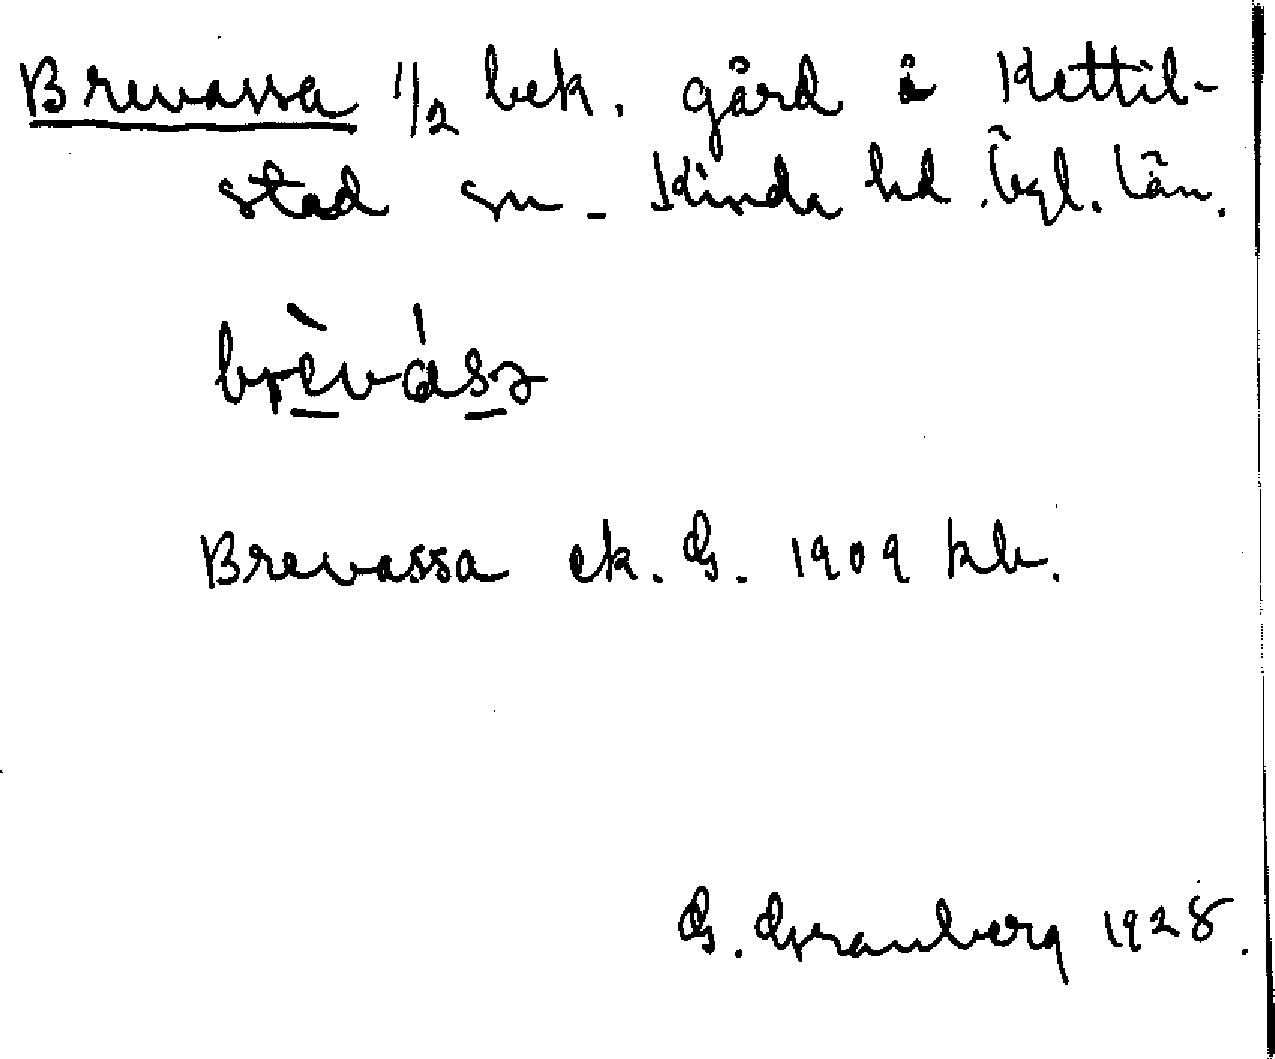 Brevassa 1/2 bek. gård i Kettil-
stad sn - Kinda hd. Ögl. län.
brèvásə
Brevassa ek. G. 1909 kb.
G. Granberg 1928.